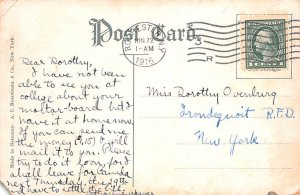 Post Card.
ROCHESTER, N.Y.
JUN 22
1-AM
1916
3
R
Made in Germany. A. C. Bosselman & Co., New York.
Dear Dorothy,
I have not been
able to see you at
college about your
mortar-board but I
have it at home now.
If you can send me
the money (.15) I will
mail it to you. Please
try to do it soon, for I
shall leave for
Thursday, the 29th
Miss Dorothy Overberg
Irondequoit R.F.D.
New York